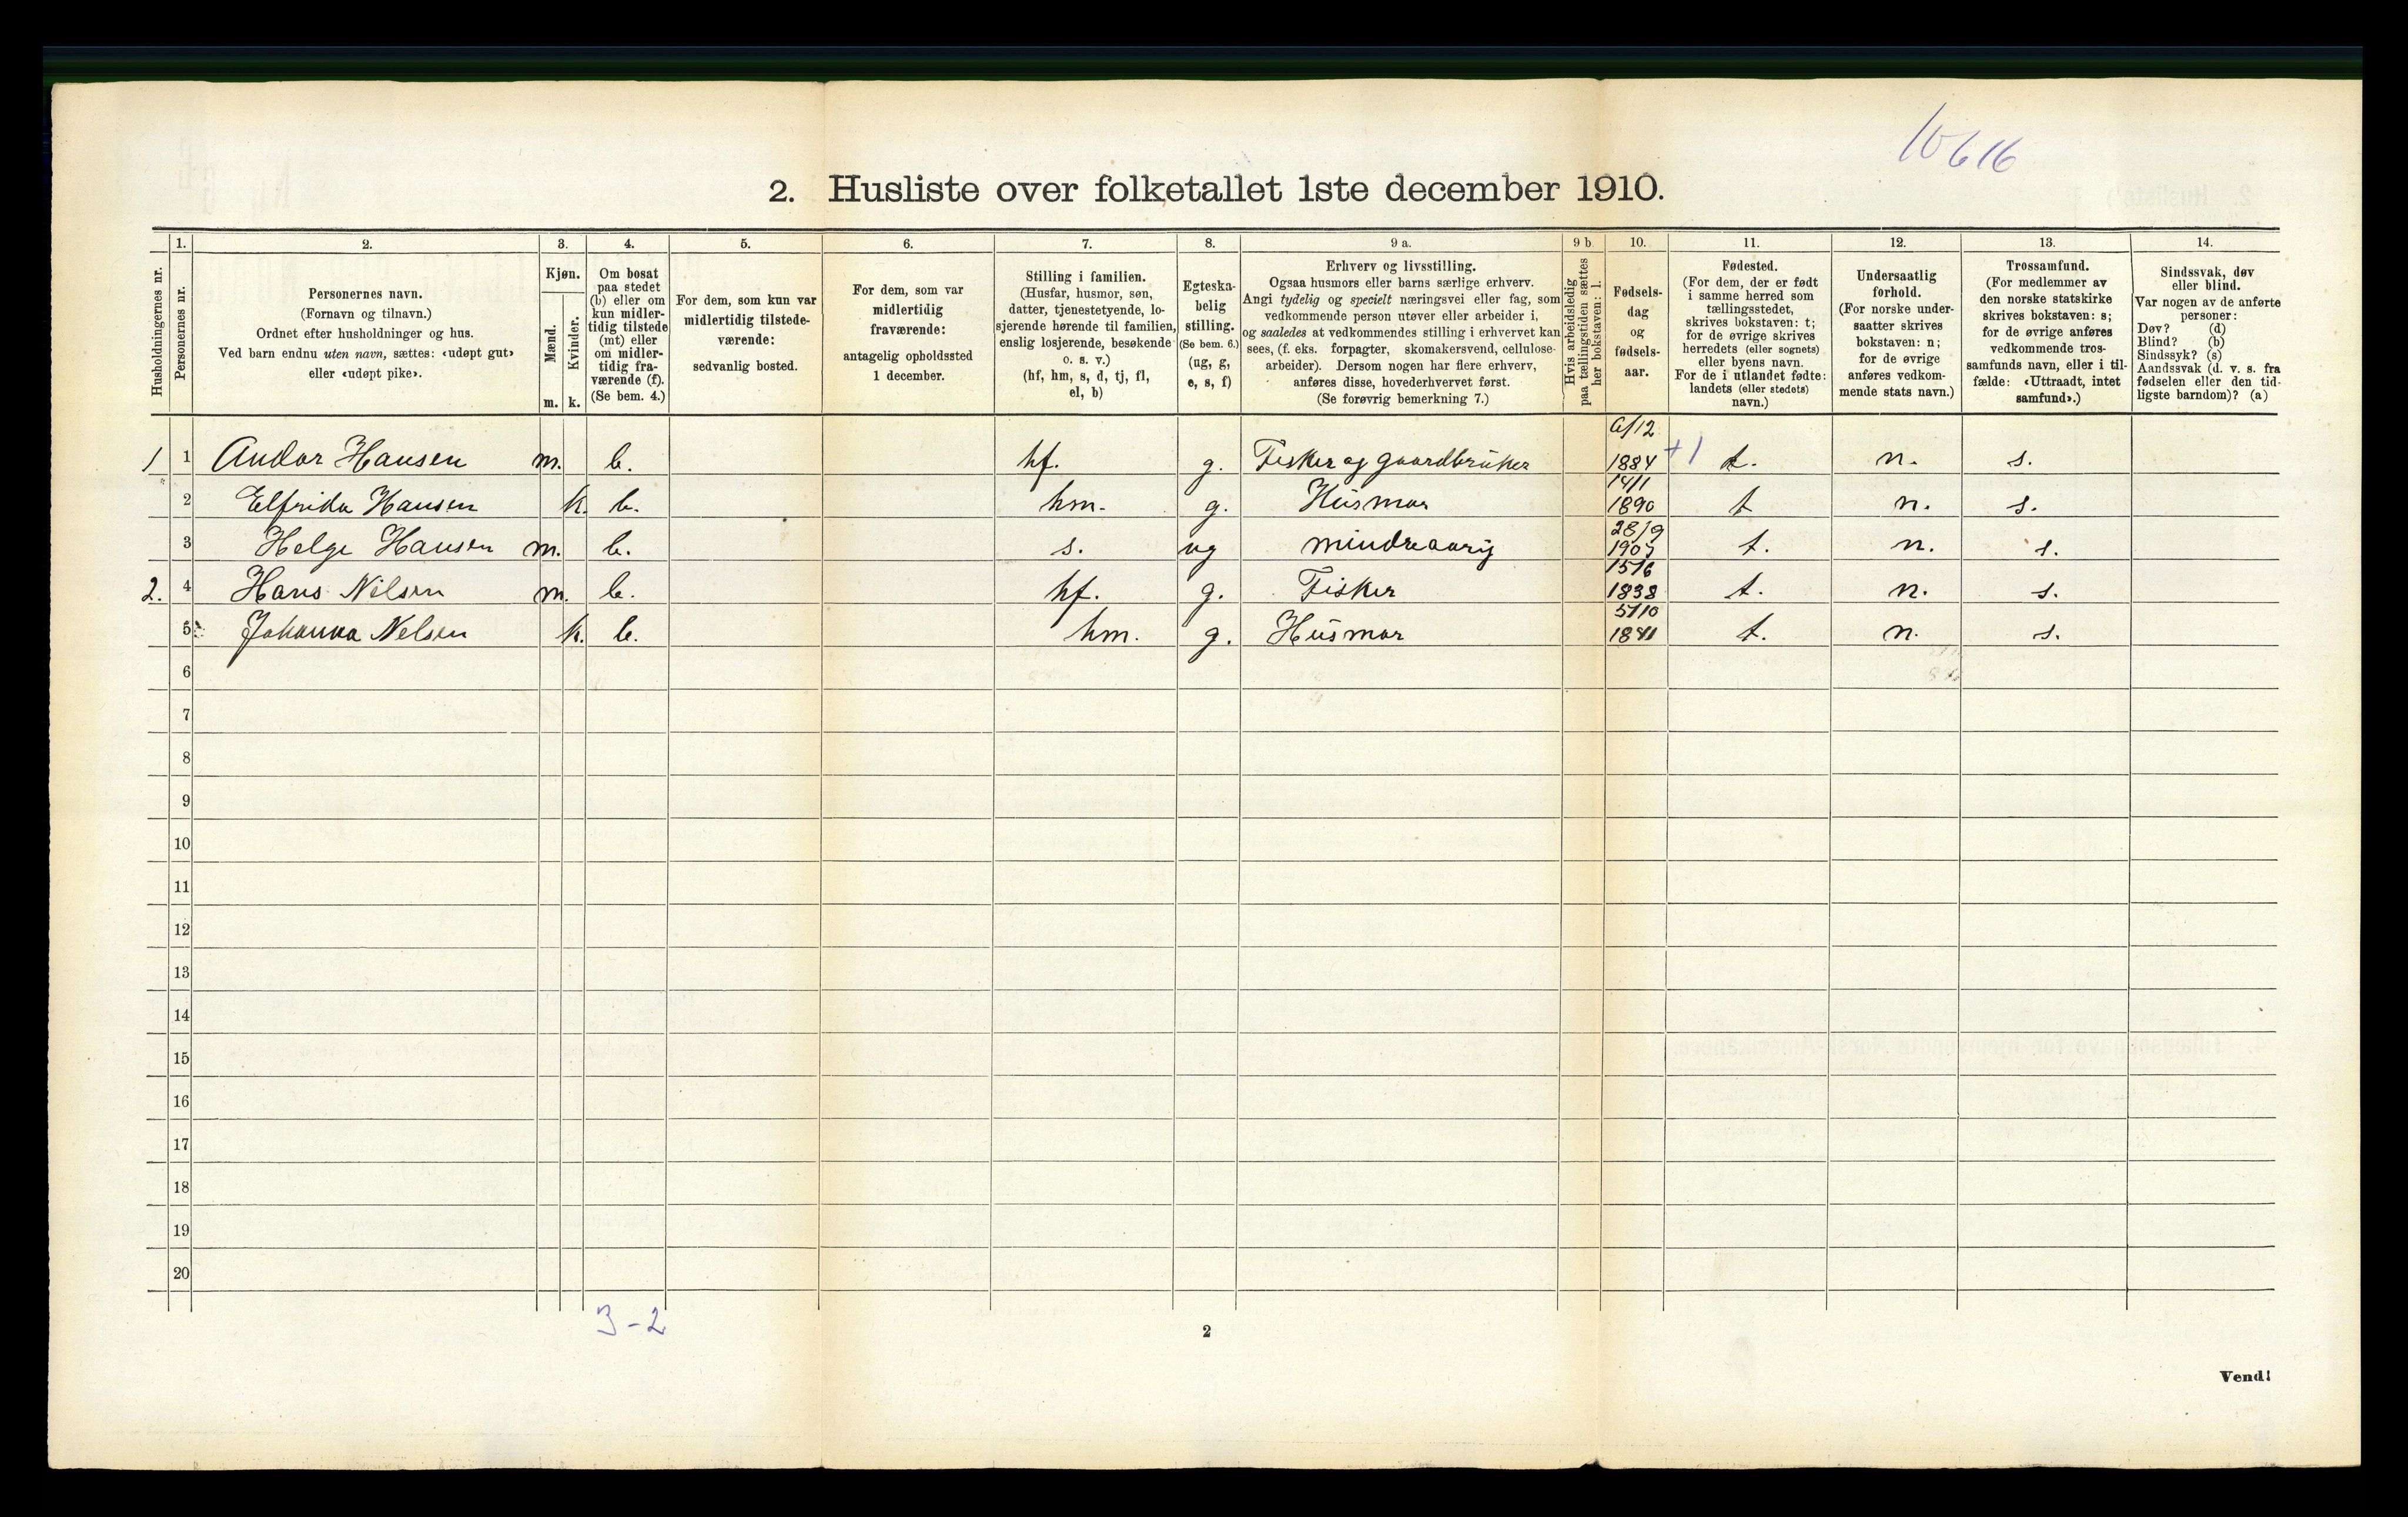 10616
2. Husliste over folketallet 1ste december 1910.
Husholdningernes nr.
1.
Personernes nr.
2.
Personernes navn.
(Fornavn og tilnavn.)
Ordnet efter husholdninger og hus.
Ved barn endnu uten navn, sættes: «udøpt gut»
eller «udøpt pike».
3.
Kjøn.
Mænd.
Kvinder.
m. k.
4.
Om bosat
paa stedet
(b) eller om
kun midler-
tidig tilstede
(mt) eller
om midler-
tidig fra-
værende (f).
(Se bem. 4.)
5.
For dem, som kun var
midlertidig tilstede-
værende:
sedvanlig bosted.
6.
For dem, som var
midlertidig
fraværende:
antagelig opholdssted
1 december.
7.
Stilling i familien.
(Husfar, husmor, søn,
datter, tjenestetyende, lo-
sjerende hørende til familien,
enslig losjerende, besøkende
o. s. v.)
(hf, hm, s, d, tj, fl,
el, b)
8.
Egteska-
belig
stilling.
(Se bem. 6.)
(ug, g,
e, s, f)
9 a.
Erhverv og livsstilling.
Ogsaa husmors eller barns særlige erhverv.
Angi tydelig og specielt næringsvei eller fag, som
vedkommende person utøver eller arbeider i,
og saaledes at vedkommendes stilling i erhvervet kan
sees, (f. eks. forpagter, skomakersvend, cellulose-
arbeider). Dersom nogen har flere erhverv,
anføres disse, hovederhvervet først.
(Se forøvrig bemerkning 7.)
9 b
Hvis arbeidsledig
paa tællingstiden sættes
her bokstaven: l.
10.
Fødsels-
dag
og
fødsels-
aar.
11.
Fødested.
(For dem, der er født
i samme herred som
tællingsstedet,
skrives bokstaven: t;
for de øvrige skrives
herredets (eller sognets)
eller byens navn.
For de i utlandet fødte:
landets (eller stedets)
navn.)
12.
Undersaatlig
forhold.
(For norske under-
saatter skrives
bokstaven: n;
for de øvrige
anføres vedkom-
mende stats navn.)
13.
Trossamfund.
(For medlemmer av
den norske statskirke
skrives bokstaven: s;
for de øvrige anføres
vedkommende tros-
samfunds navn, eller i til-
fælde: «Uttraadt, intet
samfund».)
14.
Sindssvak, døv
eller blind.
Var nogen av de anførte
personer:
Døv? (d)
Blind? (b)
Sindssyk? (s)
Aandssvak (d. v. s. fra
fødselen eller den tid-
ligste barndom)? (a)
1 1 Andor Hansen m. b. hf. g. Fisker og gaardbruker 1884 +1 t. n. s.
2 Elfrida Hansen k. b. hm. g. Husmor 14/1 1890 t n. s.
3 Helge Hansen m. b. s. ug mindreaarig 28/9 t. n. s.
2. 4 Hans Nilsen m. b. hf. g. Fisker 15/6 1838 t. n. s.
5 Johanna Nelsen k. b. hm. g. Husmor 5/10 1841 t. n. s.
6
7
8
9
10
11
12
13
14
15
16
17
18
19
20
3-2
2
Vend!